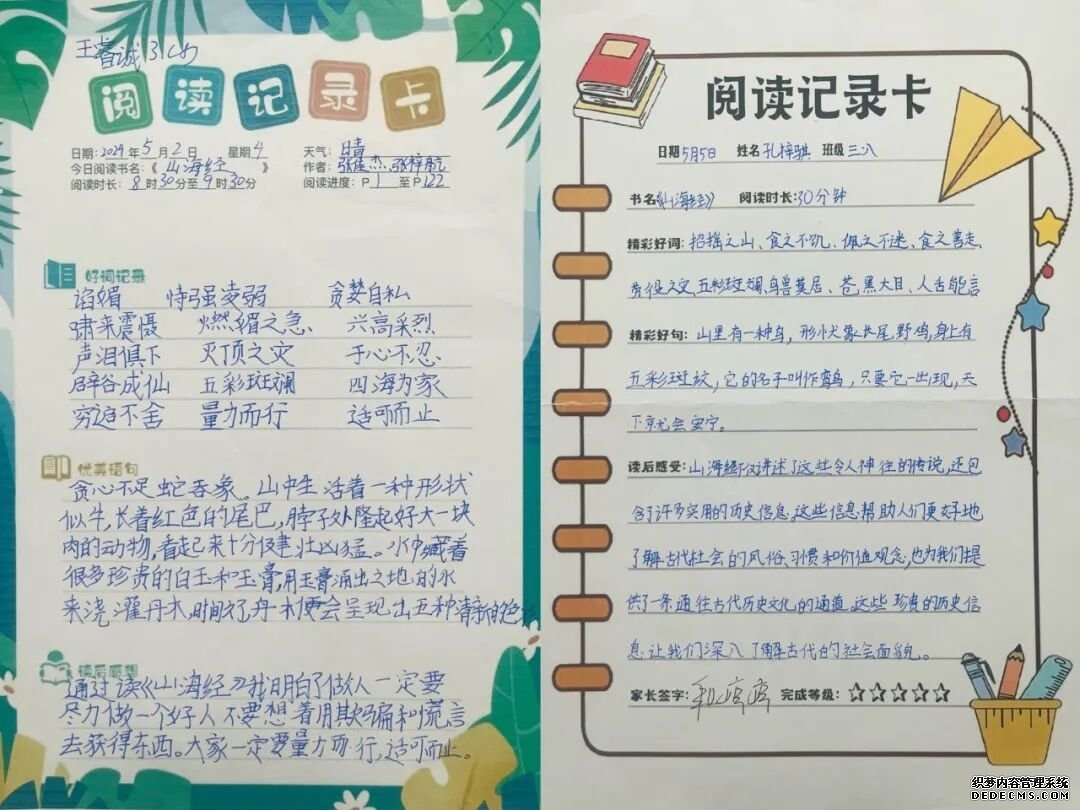 王睿诚
阅读记录卡
日期:2024年5月2日 星期4 天气:晴
今日阅读书名:《山海经》 作者:
阅读时长:8时30分至9时30分 阅读进度:P1至P122
好词记录
谄媚 恃强凌弱 贪婪自私
啸来震慑 燃眉之急、 兴高采烈
声泪俱下 灭顶之灾 于心不忍
辟谷成仙 五彩斑斓 四海为家
穷追不舍 量力而行 适可而止
优美语句
贪心不足蛇吞象。山中生活着一种形状
似牛,长着红色的尾巴,脖子处隆起好大一块
肉的动物,看起来十分健壮凶猛。水中藏着
很多珍贵的白玉和玉膏,用玉膏涌出之地的水
来浇灌丹木,时间久了丹木便会呈现出五种清新的色
读后感想
通过读《山海经》我明白了做人一定要
尽力做一个好人不要想着用欺骗和谎言
去获得东西。大家一定要量力而行,适可而止。
阅读记录卡
日期5月5日 姓名孔梓骐 班级三八
书名《山海经》 阅读时长:30分钟
精彩好词:招摇之山、食之不饥、佩之不迷、食之善走、
五彩斑斓鸟兽莫居、苍黑大目、人舌能言
精彩好句:山里有一种鸟,形状象长尾野鸡,身上有
五彩斑纹,它的名子叫作鸾鸟,只要它一出现,天
下就会安宁。
读后感受:山海经仅讲述了这些令人神往的传说,还包
含了许多实用的历史信息,这些信息帮助人们更好地
了解古代社会的风俗习惯和价值观念,也为我们提
供了一条通往古代历史文化的通道。这些珍贵的历史信
息让我们深入了解古代的社会面貌。
家长签字: 完成等级:
织梦内容管理系统
DEDECMS.COM